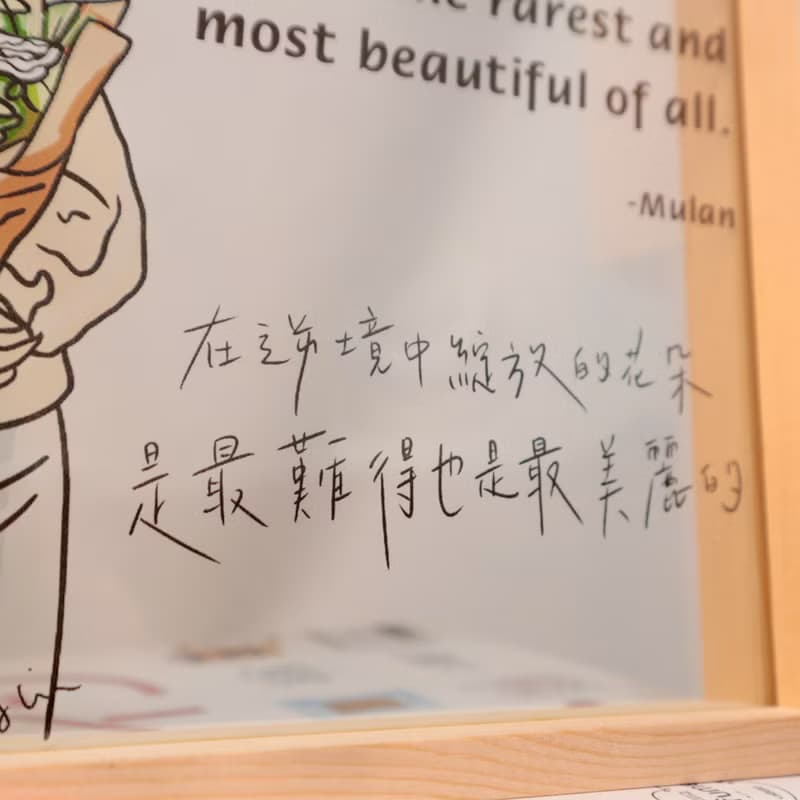 rarest and
most beautiful of all.
-Mulan
在逆境中綻放的花朵
是最難得也是最美麗的